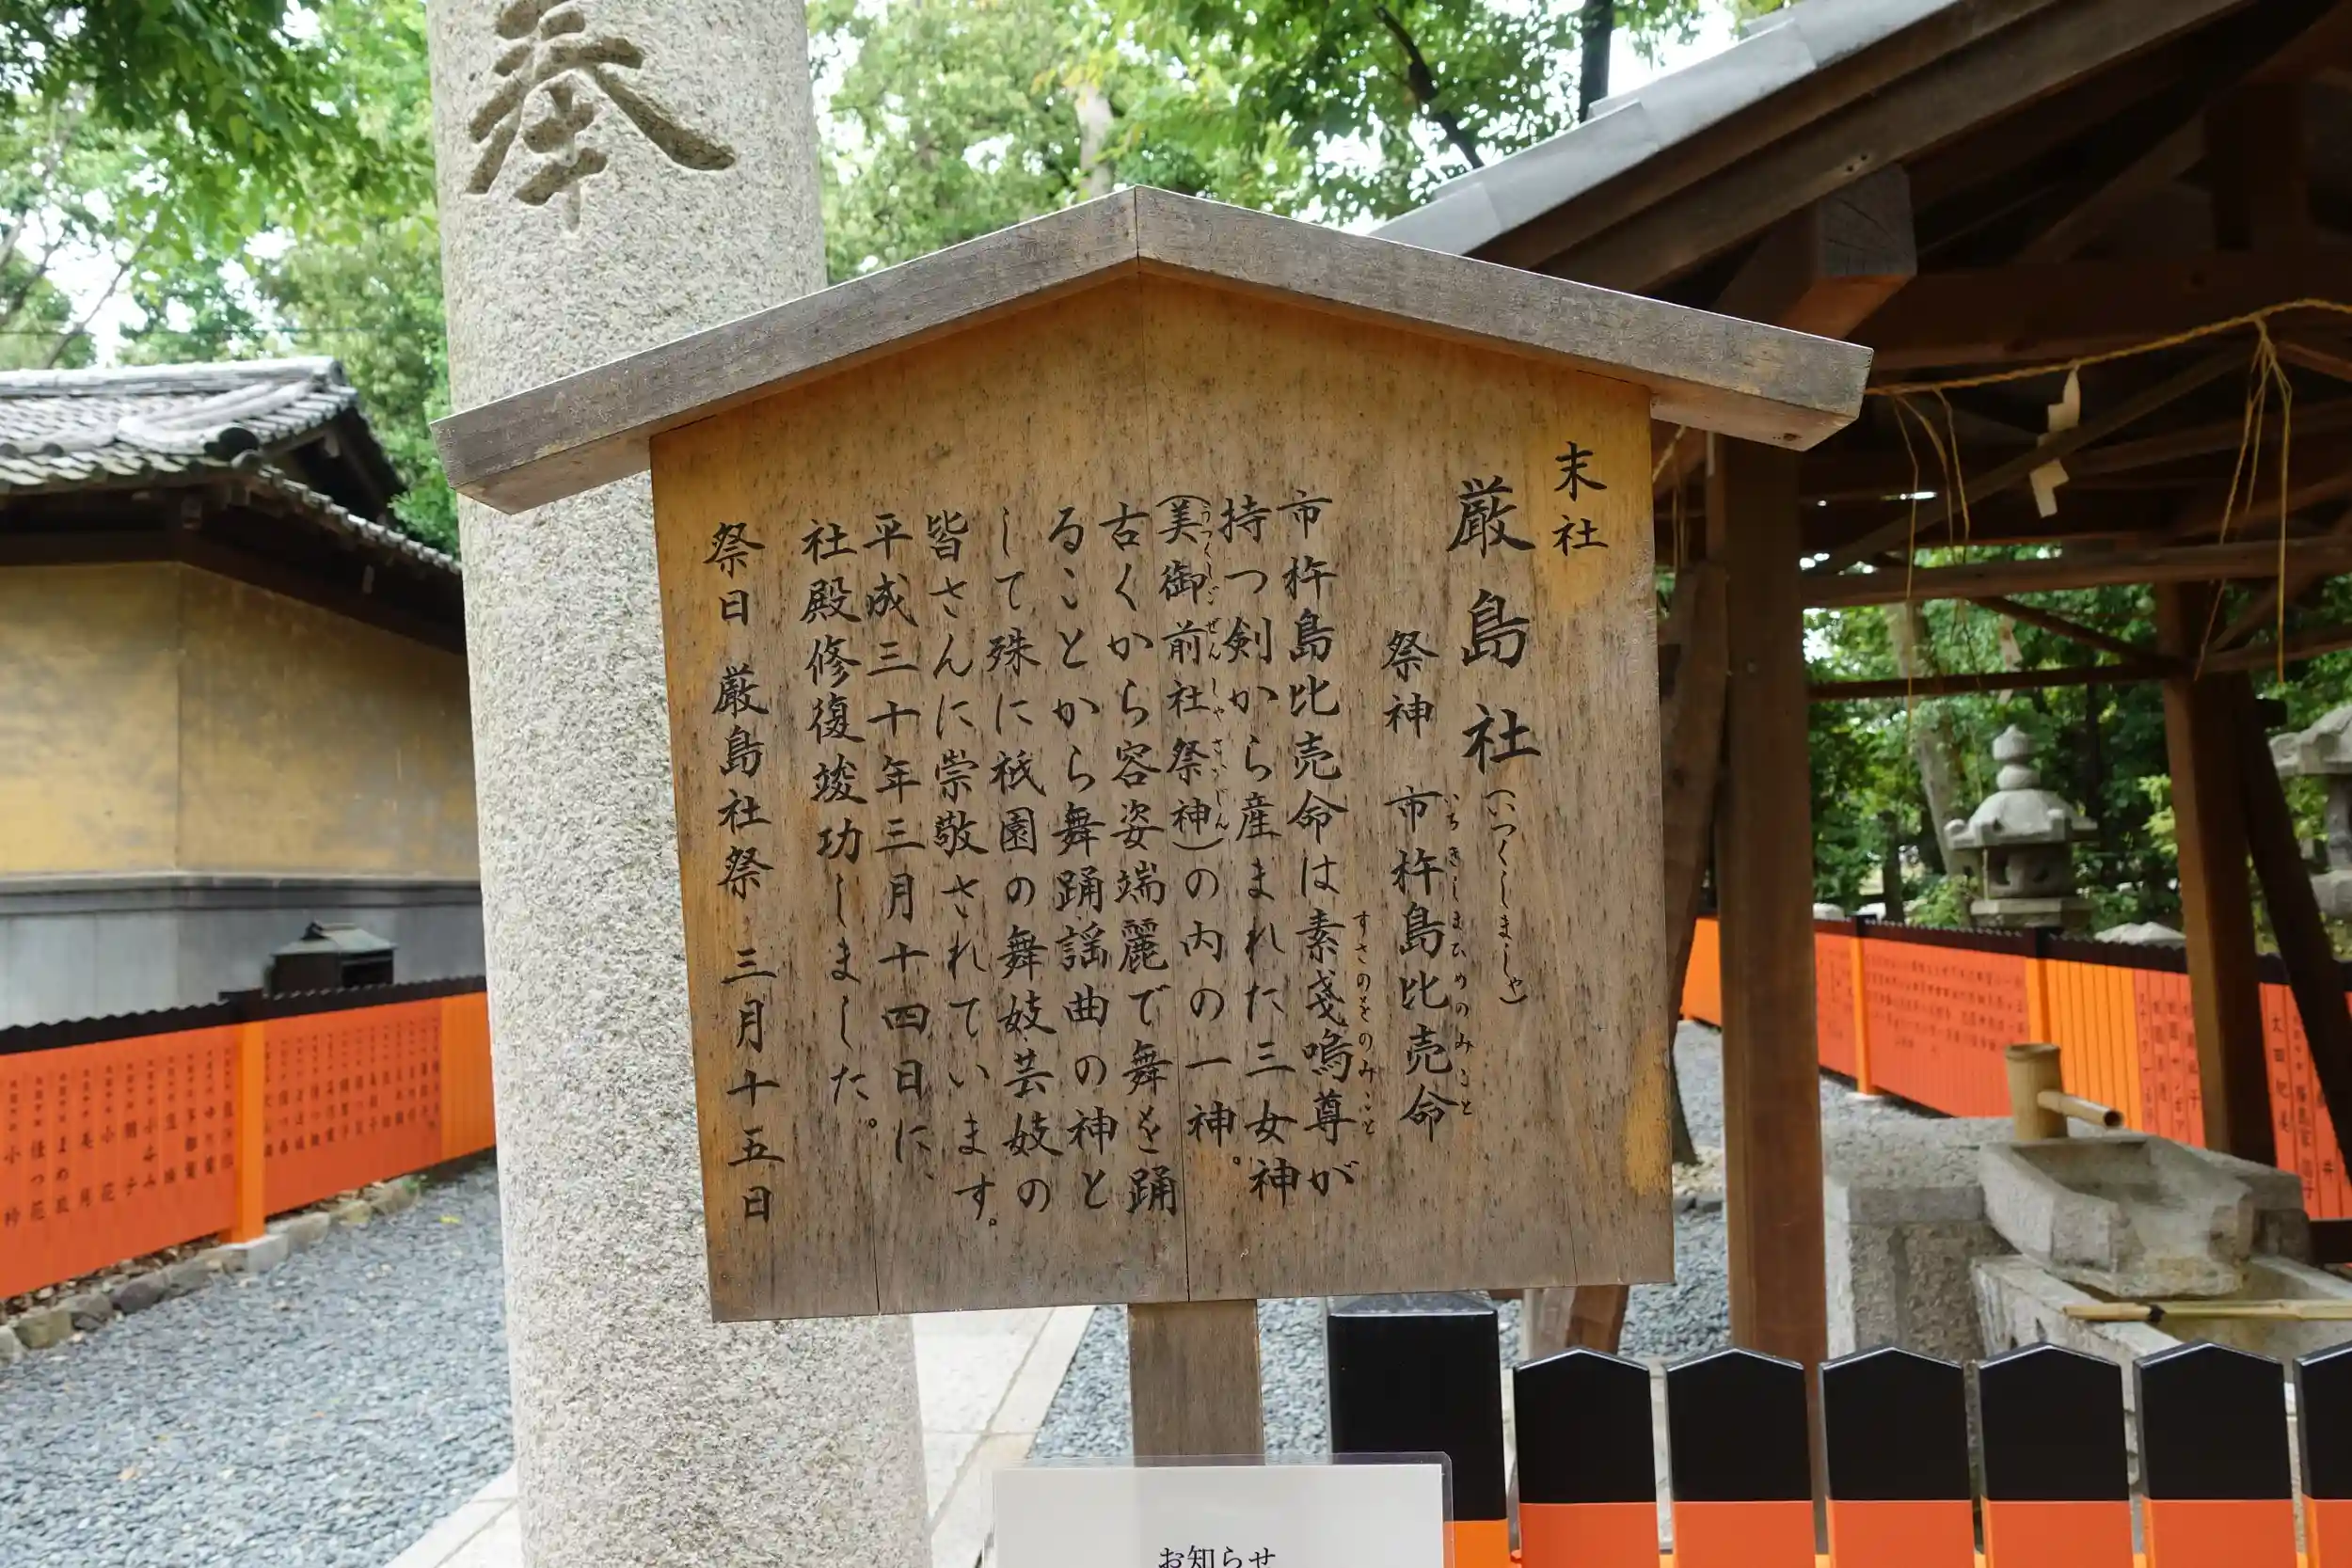 奉
末社
厳島社(いつくしましゃ)
祭神 市杵島比売命
いちきしまひめのみこと
市杵島比売命は素戔嗚尊が
すさのをのみこと
持つ剣から産まれた三女神
(美御前社祭神)の内の一神。
うつくしごぜんしゃさいじん
古くから容姿端麗で舞を踊
ることから舞踊謡曲の神と
して殊に祇園の舞妓芸妓の
皆さんに崇敬されています。
平成三十年三月十四日に、
社殿修復竣功しました。
祭日 厳島社祭 三月十五日
お知らせ